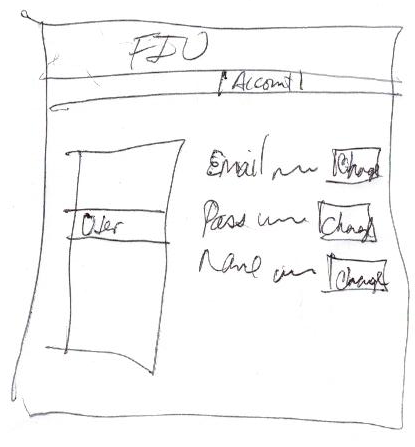 FIU
Account
Email Change
User
Pass Change
Name Change